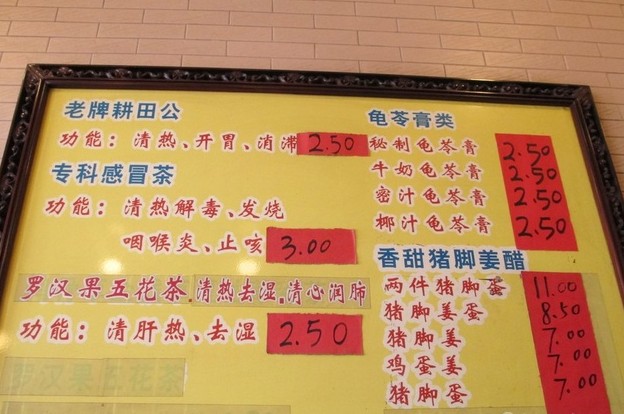 老牌耕田公
功能：清热、开胃、消滞 2.50
专科感冒茶
功能：清热解毒、发烧
咽喉炎、止咳 3.00
罗汉果五花茶.清热去湿.清心润肺
功能：清肝热、去湿 2.50
罗汉果五花茶
龟苓膏类
秘制龟苓膏 2.50
牛奶龟苓膏 2.50
密汁龟苓膏 2.50
椰汁龟苓膏 2.50
香甜猪脚姜醋
两件猪脚蛋 11.00
猪脚姜蛋 8.50
猪脚姜 7.00
鸡蛋姜 7.00
猪脚蛋 7.00